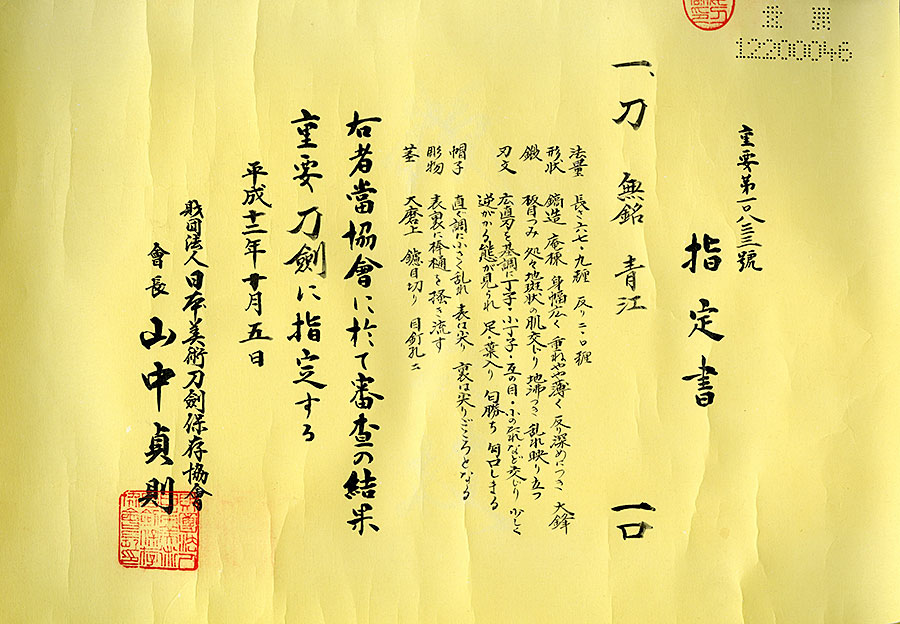 重要
12200046
重要第一〇八三三號
指定書
一、刀 無銘 青江 一口
法量 長さ六七・九糎 反り二・〇糎
形状 鎬造 庵棟 身幅広く 重ねやや薄く 反り深めにつき 大鋒
鍛 板目つみ 処々地斑状の肌交じり 地沸つき 乱れ映り立つ
刃文 広直刃を基調に丁子・小丁子・互の目・小のたれなど交じり 少しく
逆がかる態が見られ 足・葉入り 匂勝ち 匂口しまる
帽子 直ぐ調に小さく乱れ 表は尖り 裏は尖りごころとなる
彫物 表裏に棒樋を掻き流す
茎 大磨上 鑢目切り 目釘孔二
右者當協會に於て審査の結果
重要刀劍に指定する
平成十二年十月五日
財団法人日本美術刀劍保存協會
會長 山中貞則